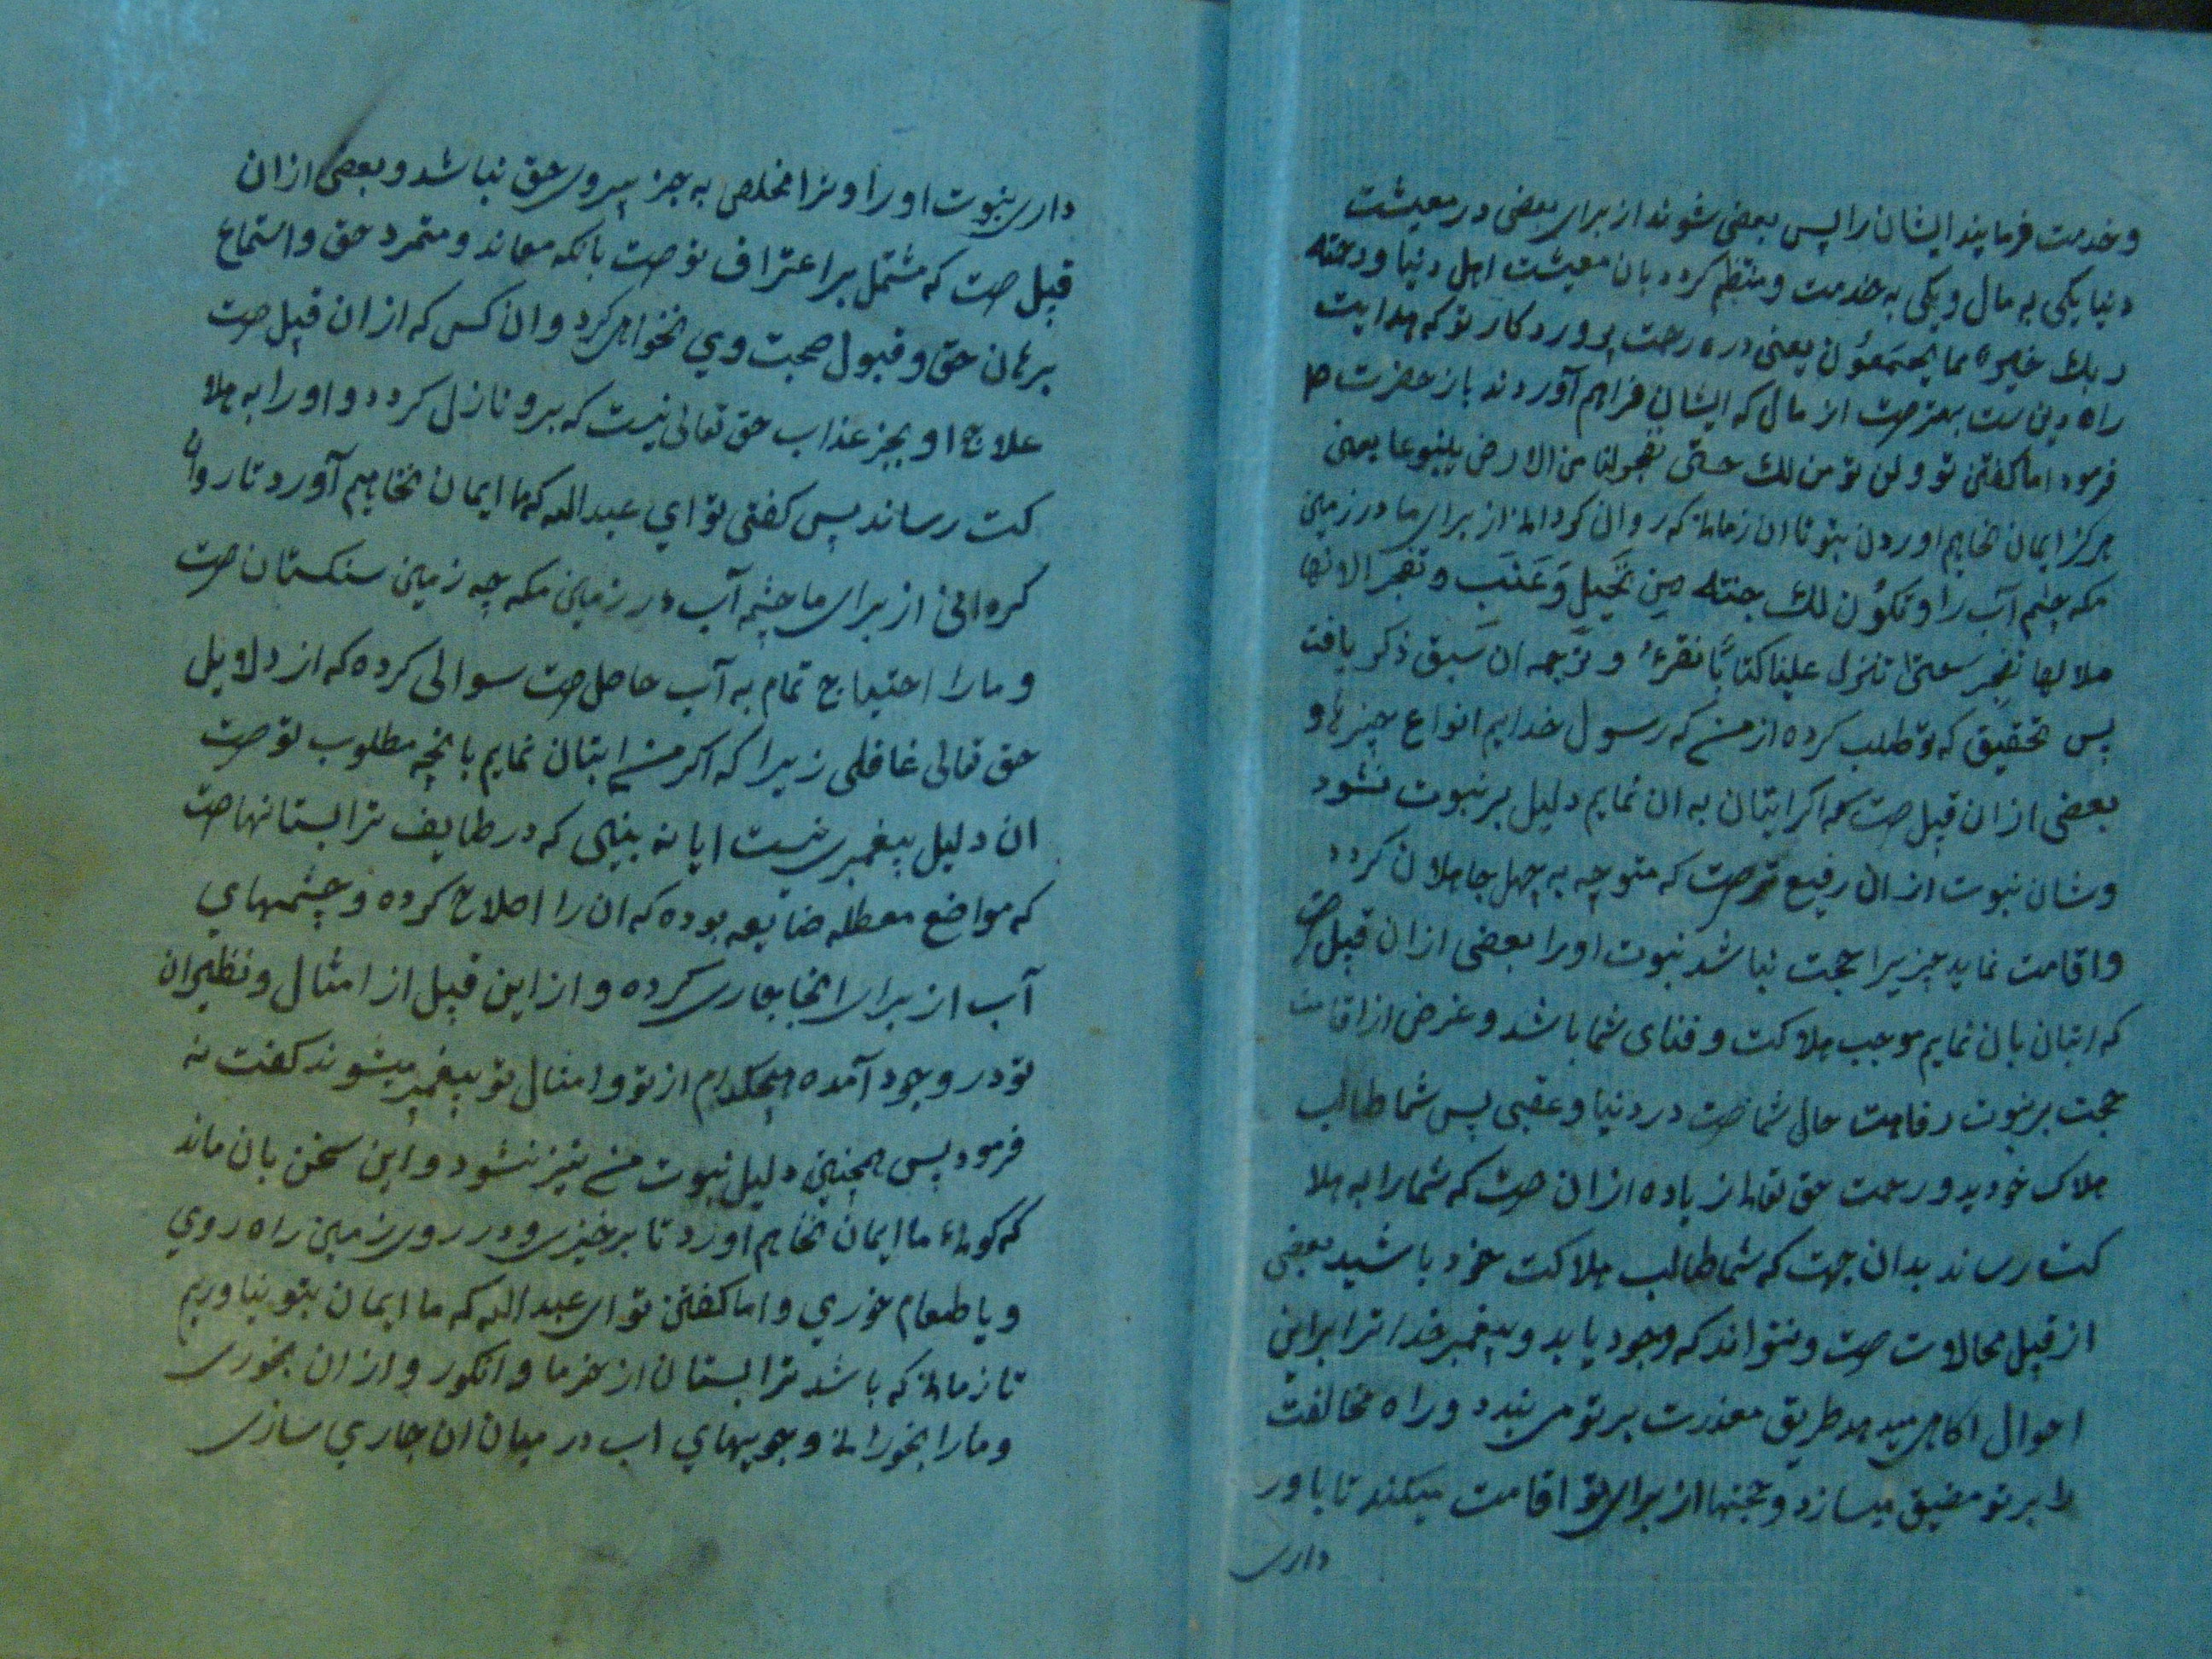 و خدمت فرمایند ایشان را پس بعضی شوند از برای بعضی در معیشت
دنیا یکی به مال و یکی به خدمت و منتظم کردد بان معیشت اهل دنیا و رحمته
ربك خیره مما یجمعون یعنی رحمت پروردکار تو که هدایت
راه دین ست بهتر صت از مال که ایشان فراهم آوردند باز حضرت ص
فرمود اما کفتن تو ولن نومن لك حتی تفجر لنا من الارض ینبوعا یعنی
هرکز ایمان نخاهیم اوردن بتو تا ان زمان که روان کردانی از برای ما در زمین
مکه چشم آب را و تکون لك جنته من نخیل و عنب و تفجر الانها
خلالها تفجیر حتی تنزل علینا کتابا نقرءُ و ترجمه ان سبق ذکر یافت
پس تحقیق که تو طلب کرده از من که رسول خدایم انواع چیزها و
بعضی از ان قبیل صت که اکر ایتان به ان نمایم دلیل بر نبوت نشود
و شان نبوت از ان رفیع تر صت که متوجه به جهل جاهلان کردد
و اقامت نماید چیزیرا حجت نباشد نبوت اورا بعضی از ان قبیل صت
که اتیان بان نمایم موجب هلاکت و فنای شما باشد و غرض از اقامت
حجت بر نبوت رفاهت حال شما صت در دنیا و عقبی پس شما طالب
هلاک خودید و رحمت حق تعالی زیاده از ان صت که شما را به هلا
کت رساند بدان جهت که شما طالب هلاکت خود باشید بعضی
از قبیل محالات صت و نتواند که وجود یابد و پیغمبر خدا ترا برین
احوال اکاهی میدهد طریق معذرت بر تو می بندد و راه مخالفت
را بر تو مضیق میسازد و حجتها از برای تو اقامت میکند تا باور
داری
داری نبوت او را و ترا مخلصی به جز پیروی حق نباشد و بعضی از ان
قبیل صت که مشتمل بر اعتراف تو صت بانکه معاند و متمرد حق و استماع
برهان حق و قبول صحبت وی نخواهی کرد و ان کس که از ان قبیل صت
علاج او بجز عذاب حق تعالی نیست که برو نازل کردد و او را به هلا
کت رساند پس کفتی تو ای عبدالله که ما ایمان نخاهیم آورد تا روان
کردانی از برای ما چشم آب در زمین مکه چه زمین سنکستان صت
و ما را احتیاج تمام به آب حاصل صت سوالی کرده که از دلایل
حق تعالی غافلی زیرا که اکر من اتیان نمایم بانچه مطلوب تو صت
ان دلیل پیغمبری نیست ایا نه بینی که در طایف ترا بستانها صت
که مواضع معطله ضایعه بوده که ان را اصلاح کرده و چشمهای
آب از برای انجا جاری کرده و از این قبیل از امثال و نظیران
تو در وجود آمده هیچکدام از تو و امثال تو پیغمبر میشوند کفت نه
فرمود پس همچنین دلیل نبوت من نیز نشود و این سخن بان ماند
که کوئی ما ایمان نخاهیم اورد تا برخیزی و در روی زمین راه روی
و یا طعام خوری و اما کفتن تو ای عبدالله که ما ایمان بتو نیاوریم
تا زمانی که باشد ترا بستان از خرما و انکور و از ان بخوری
و ما را بخورانی و جویهای اب در میان ان جاری سازی